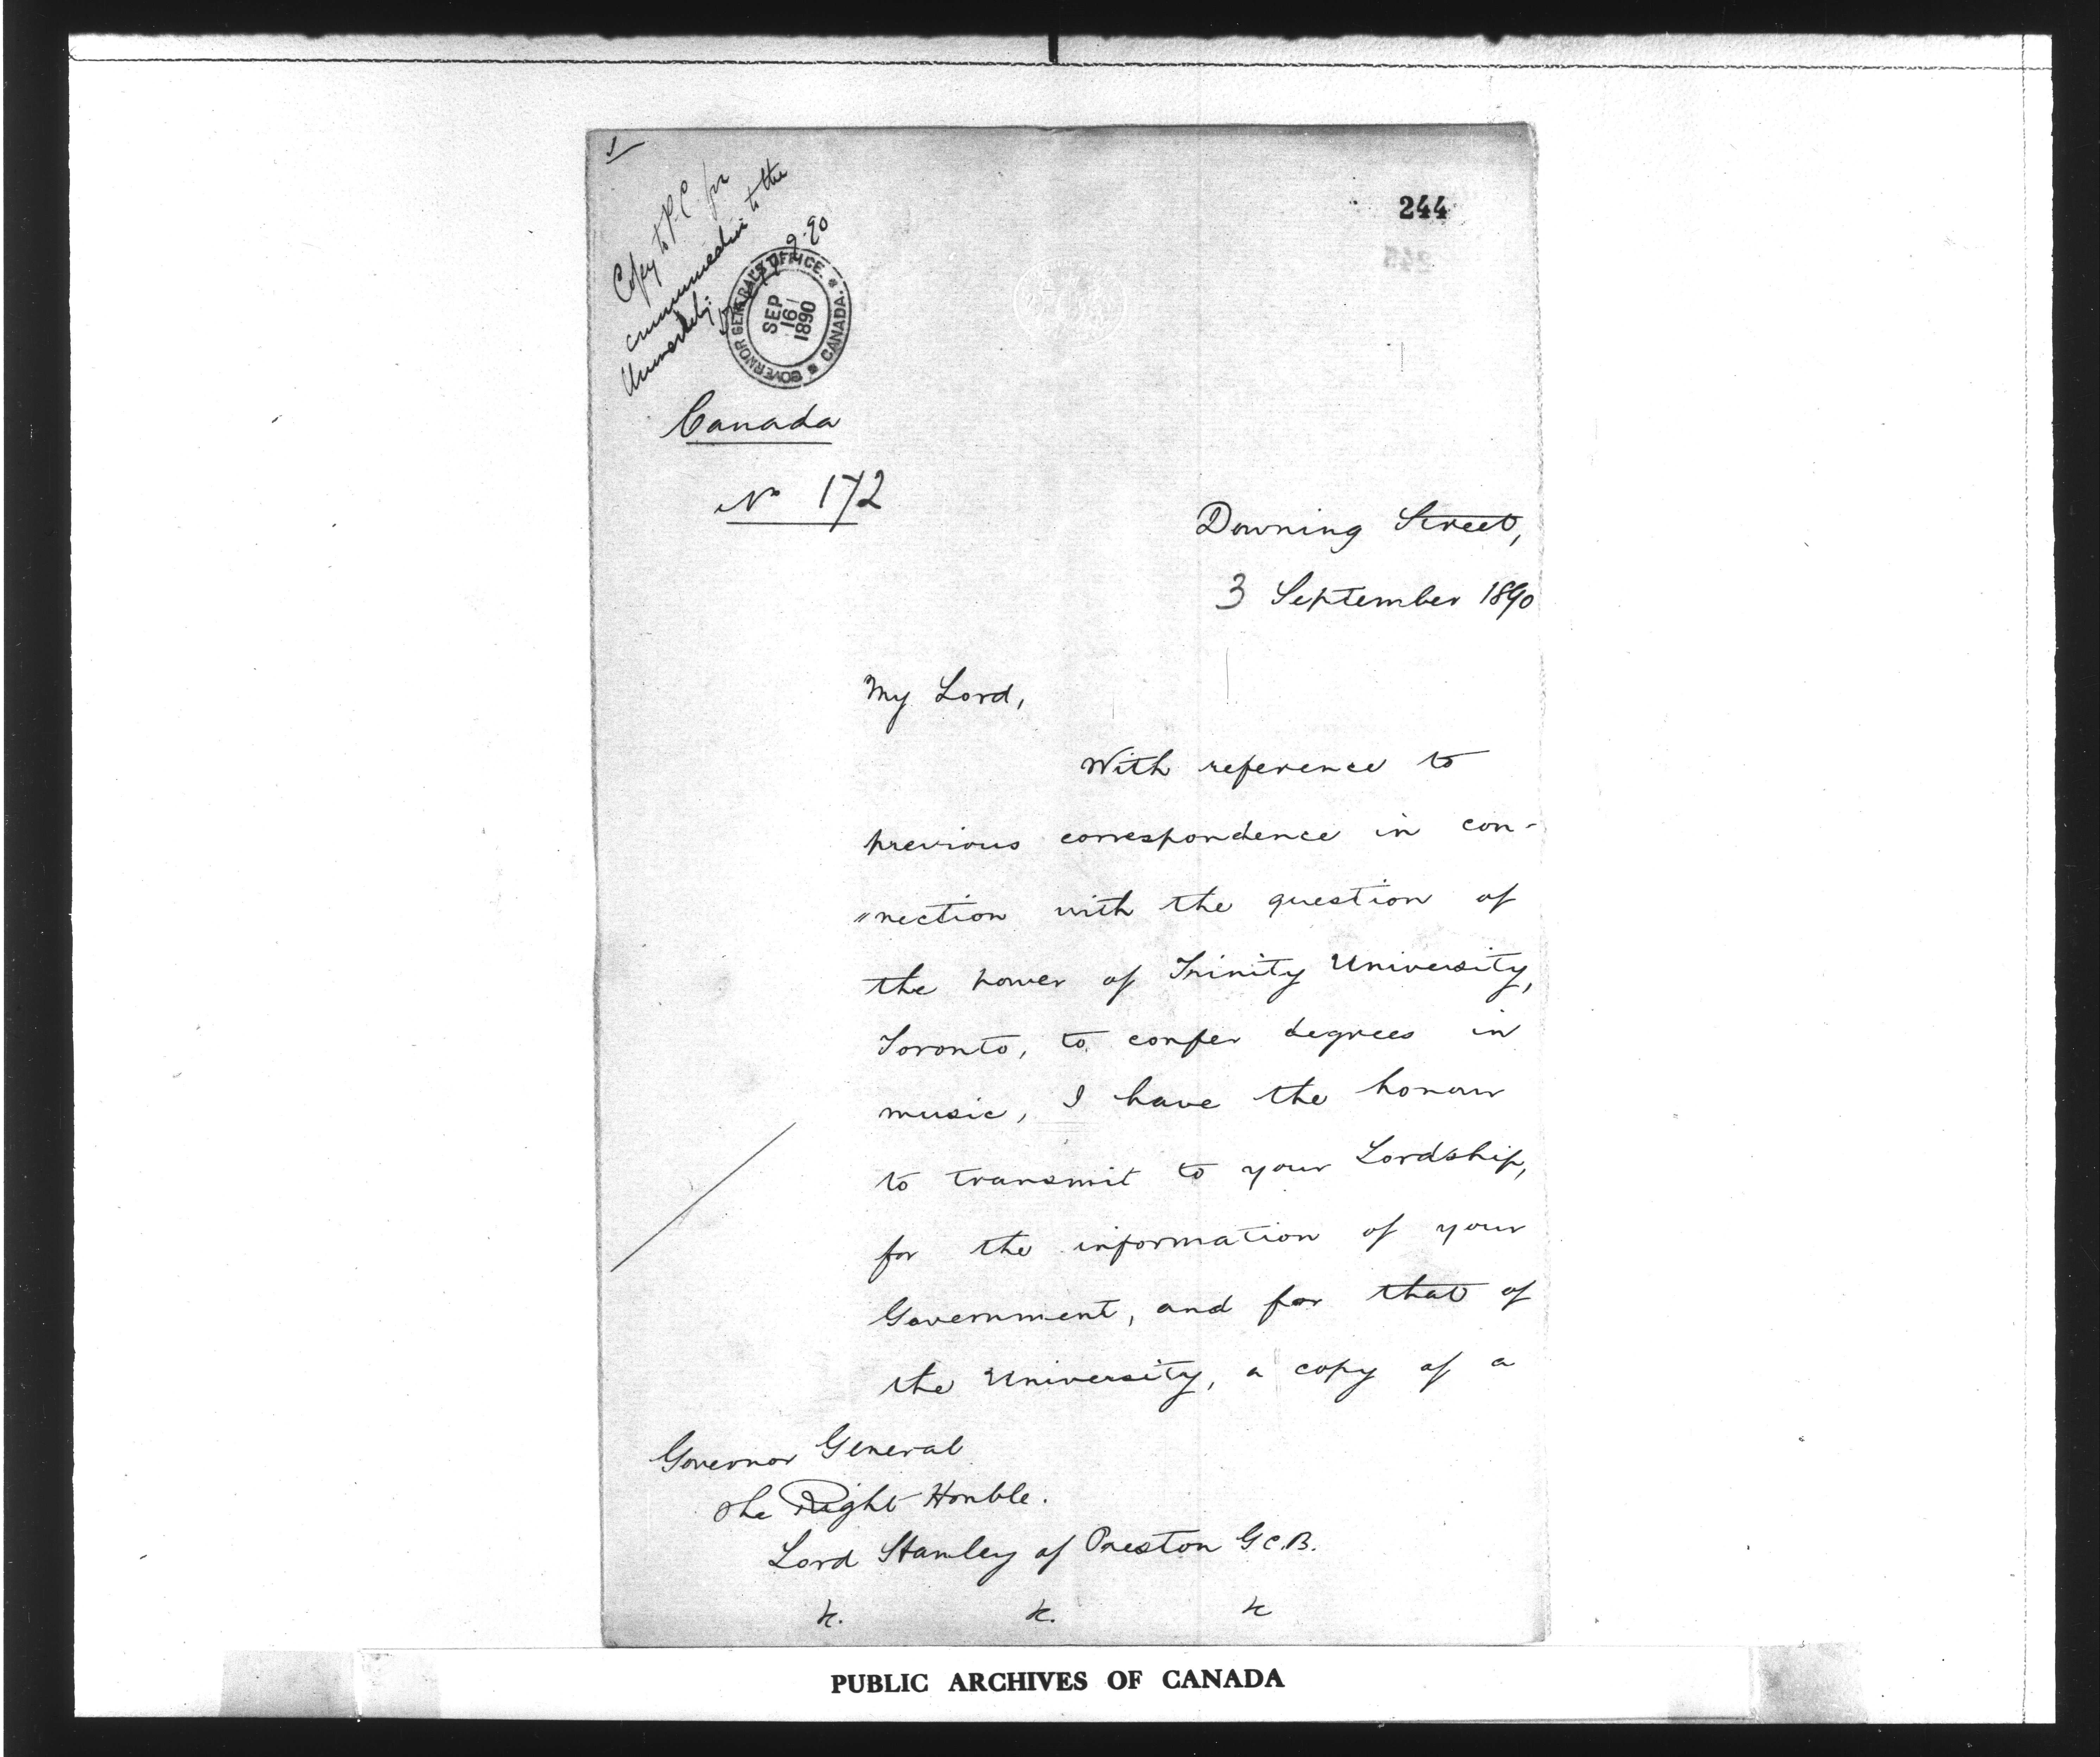 244
Copy to P.C. for
communication to the
University
9.90
GOVERNOR GENERAL'S OFFICE. * CANADA. *
SEP
16
1890
Canada
No 172
Downing Street,
3 September 1890
My Lord,
With reference to
previous correspondence in con-
"nection with the question of
the power of Trinity University,
Toronto, to confer degrees in
music, I have the honour
to transmit to your Lordship,
for the information of your
Government, and for that of
the University, a copy of a
Governor General
The Right Honble.
Lord Stanley of Preston G.C.B.
&c. &c. &c
PUBLIC ARCHIVES OF CANADA